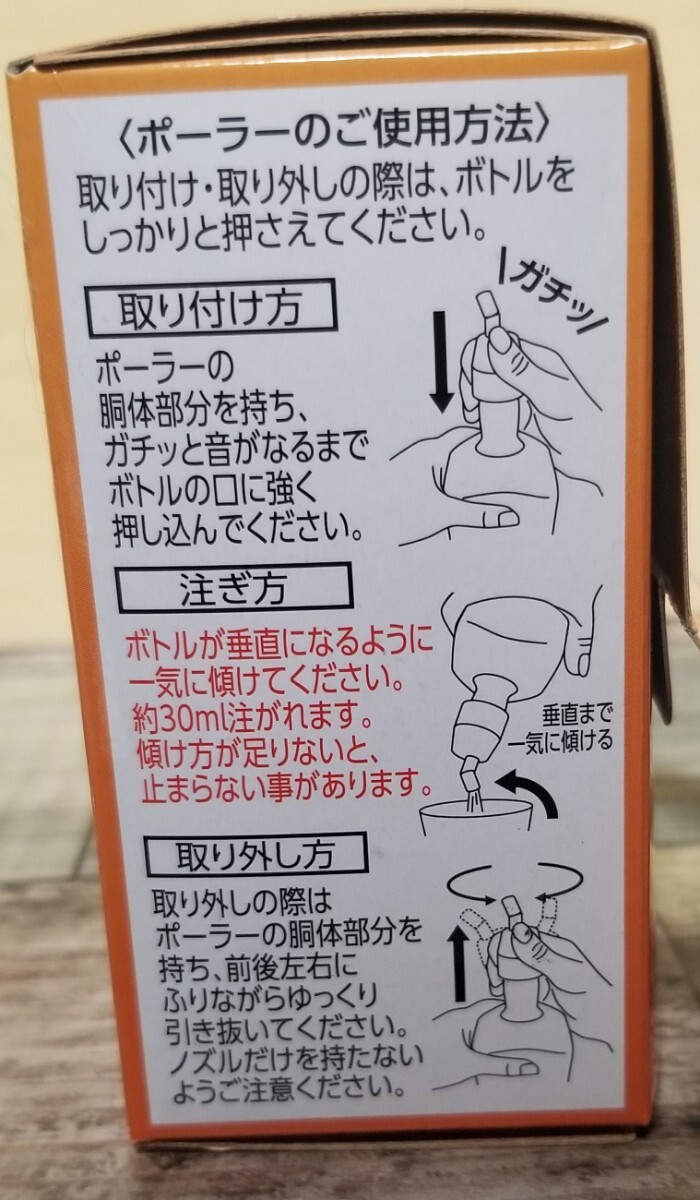 〈ポーラーのご使用方法〉
取り付け・取り外しの際は、ボトルを
しっかりと押さえてください。
取り付け方
ポーラーの
胴体部分を持ち、
ガチッと音がなるまで
ボトルの口に強く
押し込んでください。
ガチッ
注ぎ方
ボトルが垂直になるように
一気に傾けてください。
約30ml注がれます。
傾け方が足りないと、
止まらない事があります。
垂直まで
一気に傾ける
取り外し方
取り外しの際は
ポーラーの胴体部分を
持ち、前後左右に
ふりながらゆっくり
引き抜いてください。
ノズルだけを持たない
ようご注意ください。